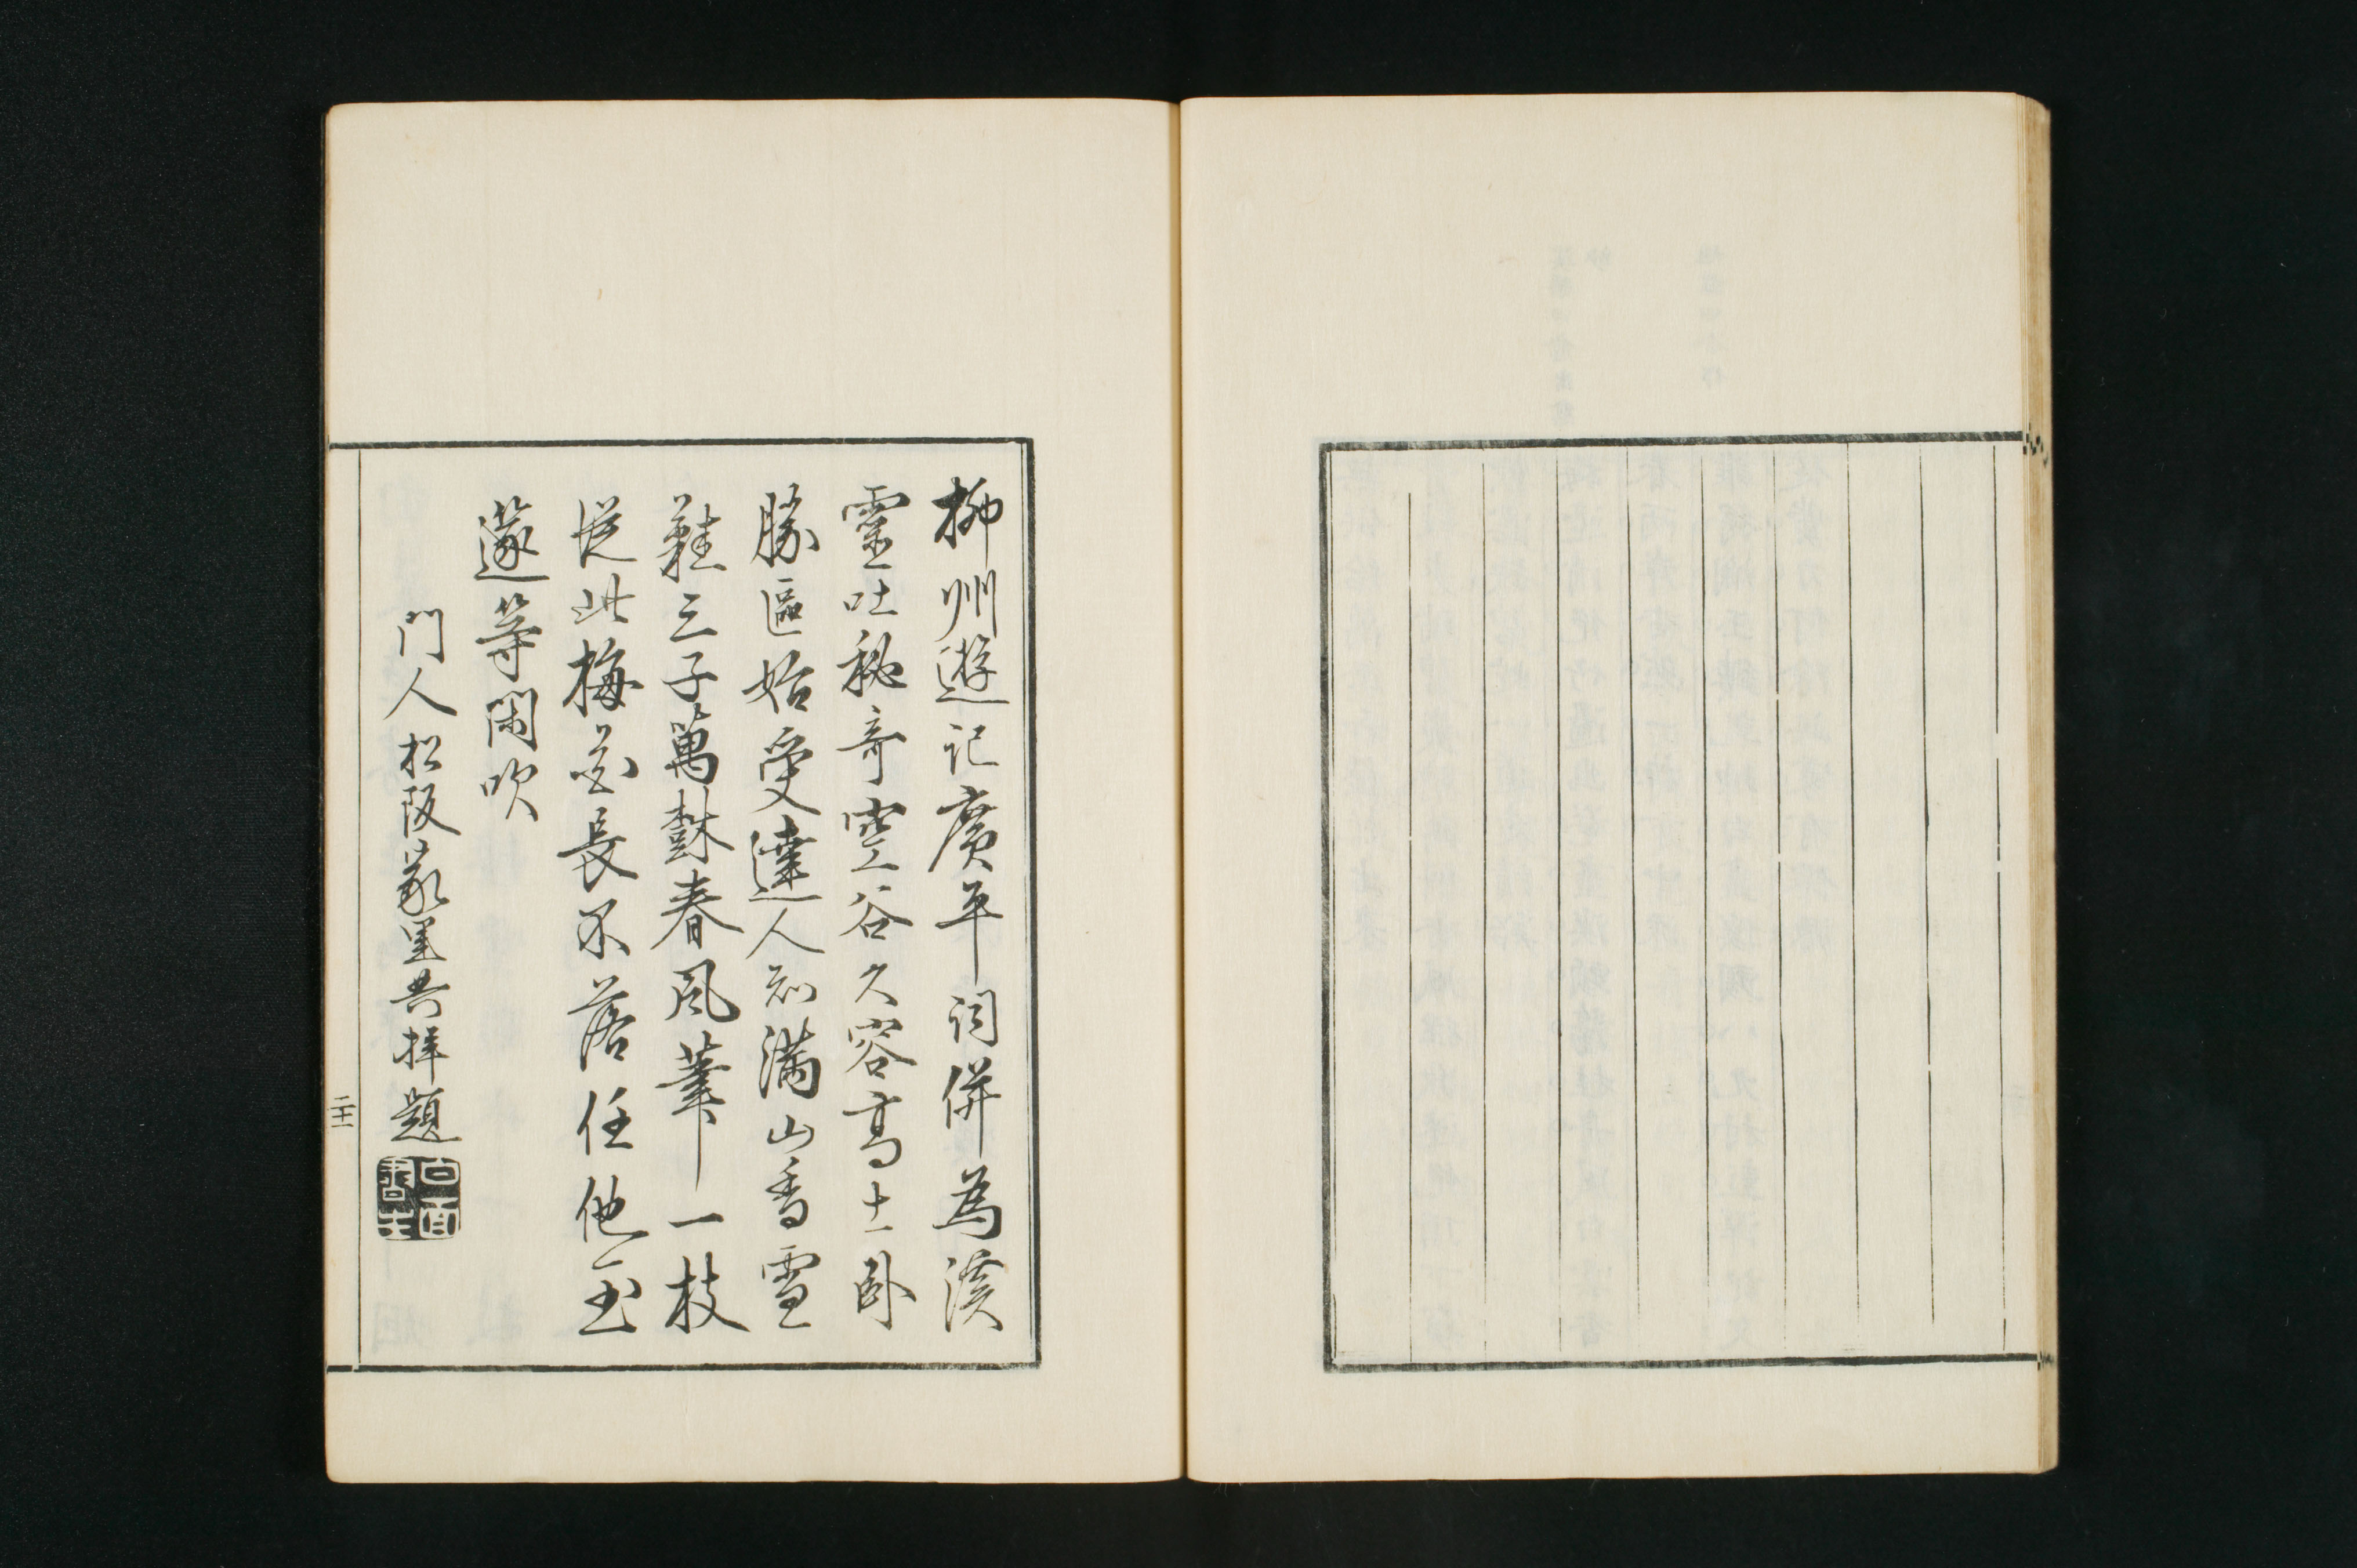 柳州遊記廣平詞併為溪
靈吐秘奇空谷久容高士臥
勝區始受達人知滿山香雪
鞋三子萬斛春風筆一枝
從此梅花長不落任他玉
篴等閑吹
門人松阪 拝題
二十一